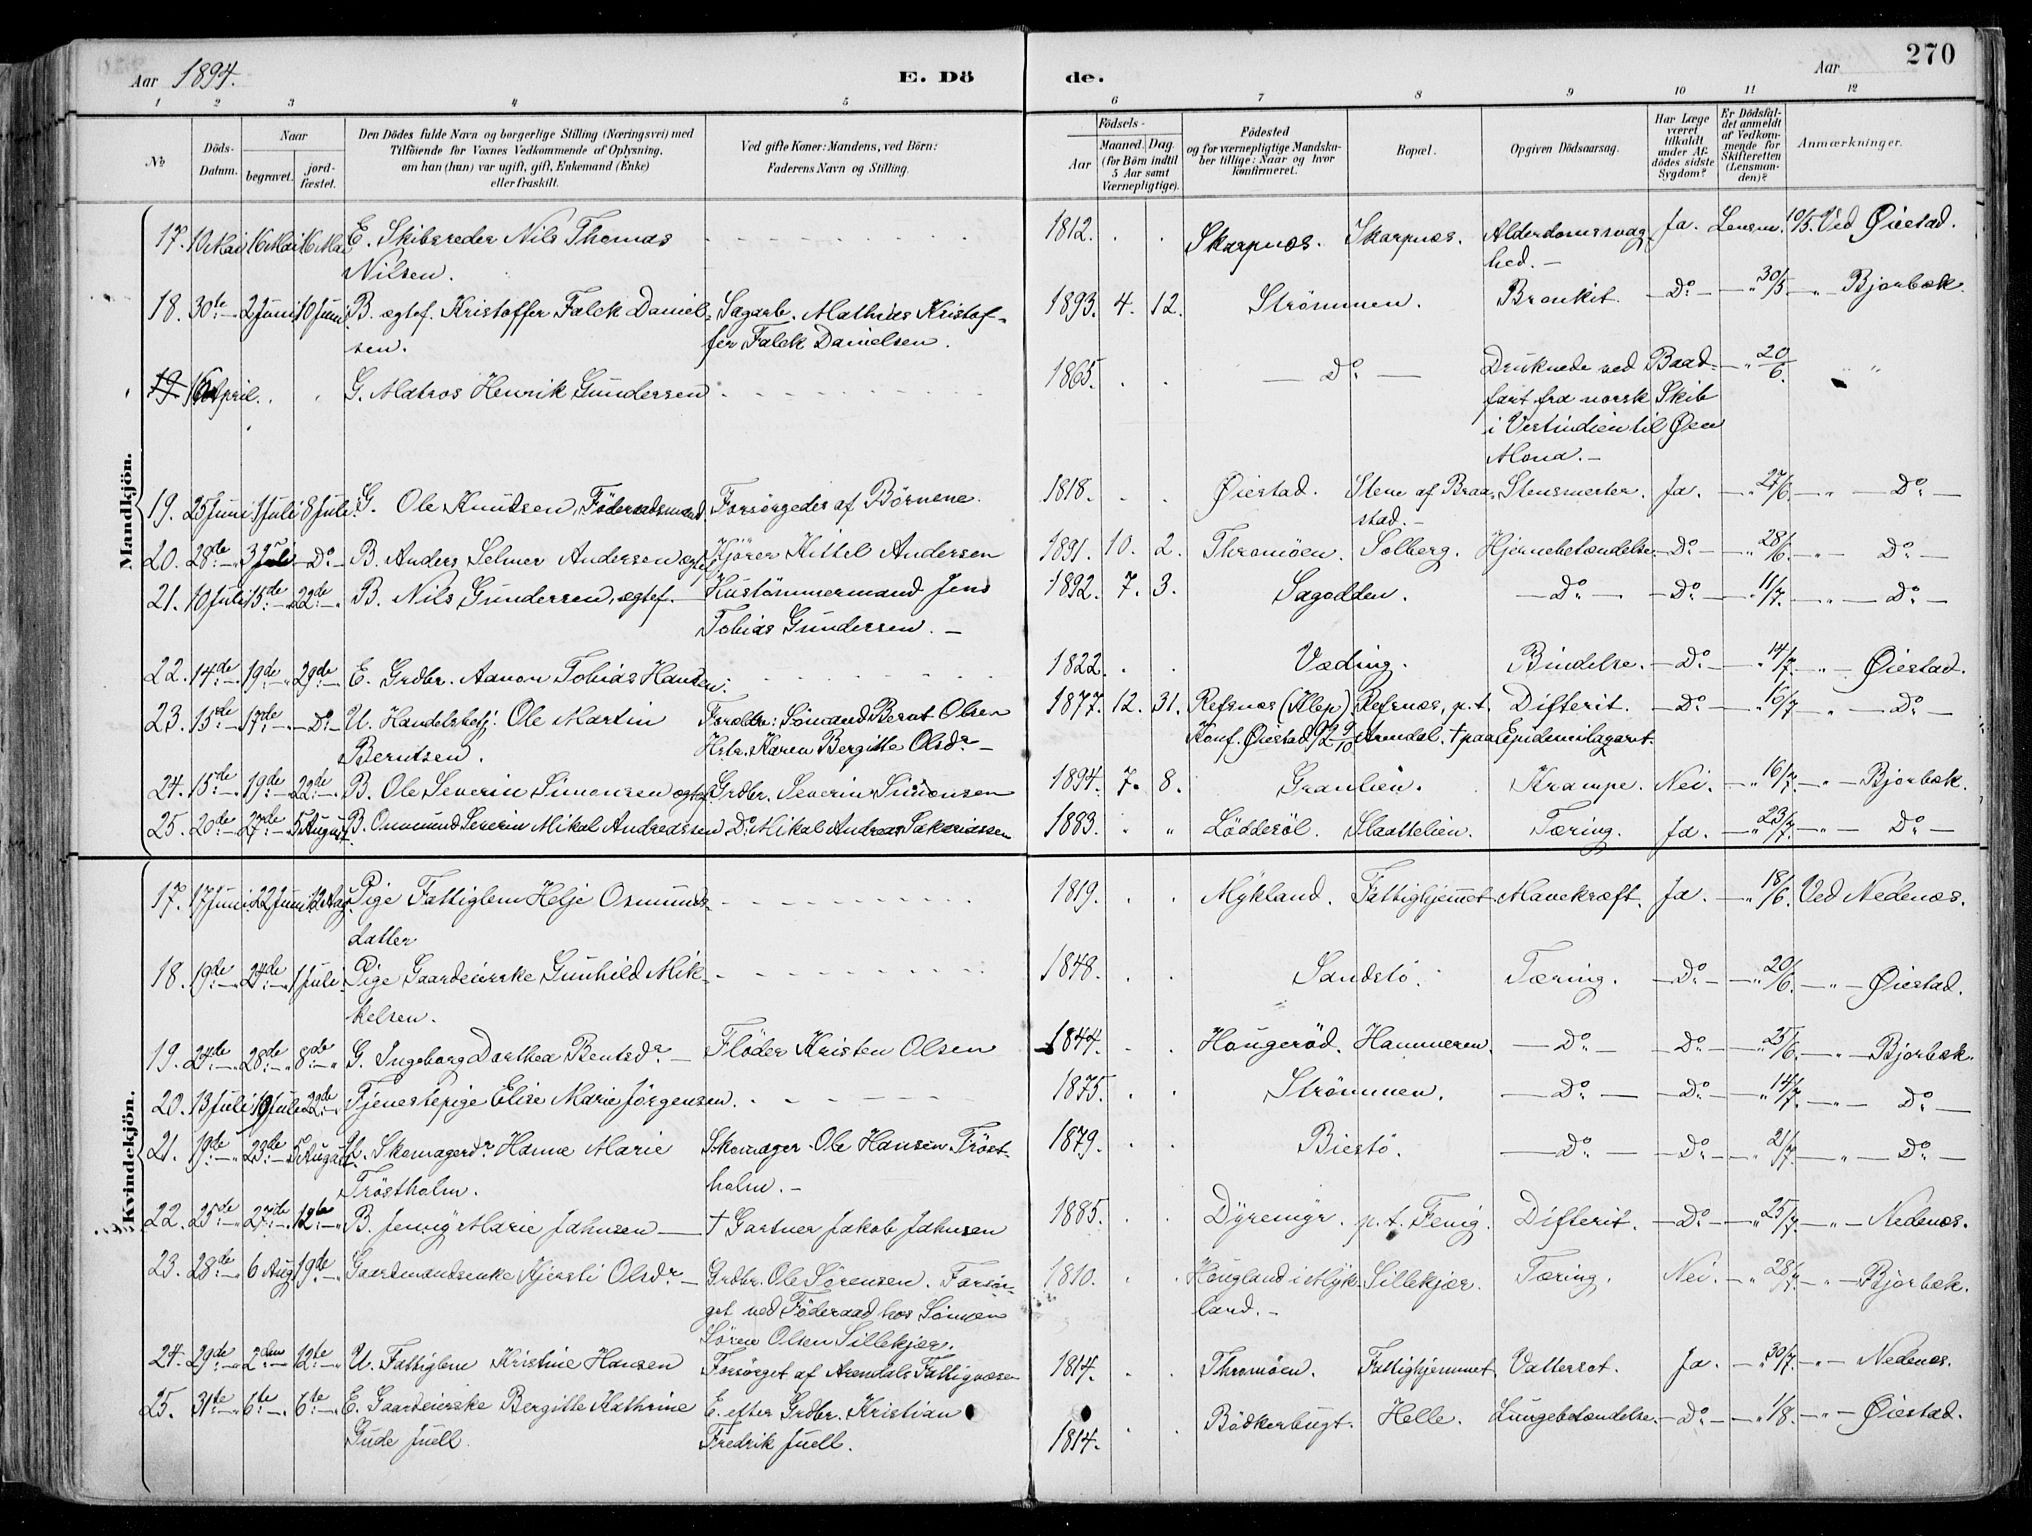 270
Aar 1894. E. Dö de. Aar
1 2 3 4 5 6 7 8 9 10 11 12
No Döds-Datum. Naar begravet. jord-fæstet. Den Dödes fulde Navn og borgerlige Stilling (Næringsvei) med Tilföiende for Voxnes Vedkommende af Oplysning, om han (hun) var ugift, gift, Enkemand (Enke) eller fraskilt. Ved gifte Koner: Mandens, ved Börn: Faderens Navn og Stilling. Födsels- Aar Maaned. Dag. (for Börn indtil 5 Aar samt Værnepligtige). Födested og for værnepligtige Mandskaber tillige: Naar og hvor konfirmeret. Bopæl. Opgiven Dödsaarsag. Har Læge været tilkaldt under Afdödes sidste Sygdom? Er Dödsfaldet anmeldt af Vedkommende for Skifteretten (Lensmanden)? Anmærkninger.
Mandkjön.
17. 10 Mai 16 Mai 16 Mai E. Skibsreder Nils Thomas 1812. Skarpnæs. Skarpnæs. Alderdomssvag- Ja. Lensm. 10/5. Ved Øiestad.
Nilsen. hed. –
18. 30te 2 Juni 10 Juni B. ægtef. Kristoffer Falck Daniel- Sagarb. Mathias Kristof- 1893. 4. 12. Strömmen. Bronkit. Do 30/5 Bjorbæk.
sen. fer Falck Danielsen.
19 16 April. G. Matros Henrik Gundersen 1865. Do Druknede ved Baad- 20/6.
fart fra norsk Skib
i Vestindien til Øen
Mona. –
19. 25 Juni 1 Juli 8 Juli G. Ole Knudsen, Föderaadsmand. Forsörgedes af Börnene. 1818. Øiestad. Stene af Braa- Stensmerter. Ja. 27/6. Do
stad. –
20. 28de 3 Juli Do B. Anders Selmer Andersen ægtef. Kjörer Kittel Andersen 1891. 10. 2. Thromöen. Solberg. Hjernebetændelse. Do 28/6. Do
21. 10 Juli 15de 22de B. Nils Gundersen, ægtef. Hustömmermand Jens 1892. 7. 3. Sagodden. Do Do 11/7. Do
Tobias Gundersen. –
22. 14de 19de 29de E. Grdbr. Aanon Tobias Hansen. 1822. Væding. Bindelse. Do 14/7. Øiestad.
23. 15de 17de Do U. Handelsbetj. Ole Martin Forældr: Sömand Bernt Olsen 1877. 12. 31. Refsnæs (Alep) Refsnæs, p.t. Difterit. Do 16/7 Do
Berntsen. Hstr. Karen Bergitte Olsdr – Konf. Øiestad 92 9/10 Arendal. † paa Epidemilazaret.
24. 15de 19de 22de B. Ole Severin Simonsen ægtef. Grdbr. Severin Simonsen 1894. 7. 8. Granlien. Krampe. Nei. 16/7. Bjorbæk.
25. 20de 27de 5 August B. Osmund Severin Mikal Andreassen Do Mikal Andreas Sakariassen 1883. Lödderöl. Slaattelien. Tæring. Ja. 23/7. Do
Kvindekjön.
17. 17 Juni 22 Juni 12 Aug. Pige Fattiglem Helje Osmunds- 1819. Mykland. Fattighjemmet. Mavekræft. Ja. 18/6. Ved Nedenæs.
datter
18. 19de 24de 1 Juli Pige Gaardeierske Gunhild Mik- 1848. Sandstö. Tæring. Do 20/6. Øiestad.
kelsen.
19. 24de 28de 8de G. Ingeborg Dorthea Bentsdr – Flöder Kristen Olsen 1844. Hougeröd. Hammeren. Do Do 25/6. Bjorbæk.
20. 13 Juli 19 Juli 22de Tjenestepige Elise Marie Jörgensen. 1875. Strömmen. Do Do 14/7. Do
21. 19de 23de 5 August U. Skomagerdr Hanne Marie Skomager Ole Hansen Tröst- 1879. Biestö. Do Do 21/7. Do
Tröstholm. holm. –
22. 25de 27de 12te B. Jenny Marie Jahnsen † Gartner Jakob Jahnsen 1885. Dyremyr. p.t. Fevig. Difterit. Do 25/7. Nedenæs.
23. 28de 6 Aug 19de Gaardmandsenke Kjersti Olsdr – Grdbr. Ole Sörensen. Forsör- 1810. Hougland i Myk- Sillekjær. Tæring. Nei. 28/7. Bjorbæk.
get ved Föderaad hos Sönnen land. –
Sören Olsen Sillekjær.
24. 29de 2den 12te U. Fattiglem Kristine Hansen Forsörget af Arendals Fattigvæsen 1814. Thromöen. Fattighjemmet. Vattersot. Ja. 30/7. Nedenæs.
25. 31te 6te 6te E. Gaardeierske Bergitte Kathrine E. efter Grdbr. Kristian 1814. Bödkerbugt. Helle. Lungebetændelse. Do 1/8. Øiestad.
Gude Juell. Fredrik Juell.